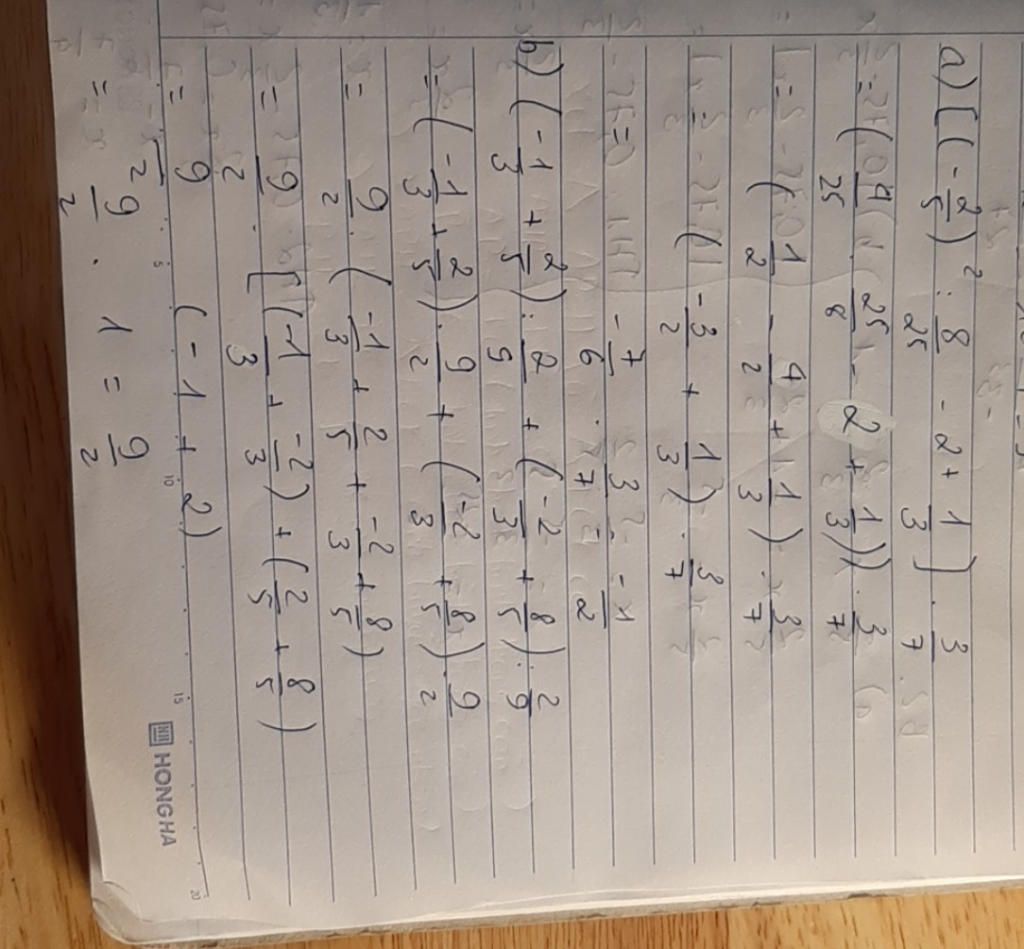 a) [(-2/5)² : 8/25 - 2 + 1/3] . 3/7
= (4/25 . 25/8 - 2 + 1/3) . 3/7
(1/2 - 4/2 + 1/3) . 3/7
(-3/2 + 1/3) . 3/7
-7/6 . 3/7 = -1/2
b) (-1/3 + 2/5) : 2/9 + (-2/3 + 8/5) : 2/9
= (-1/3 + 2/5) . 9/2 + (-2/3 + 8/5) . 9/2
= 9/2 . (-1/3 + 2/5 + -2/3 + 8/5)
= 9/2 . [(-1/3 + -2/3) + (2/5 + 8/5)
= 9/2 (-1 + 2)
= 9/2 . 1 = 9/2
5 10 15 20
HONGHA